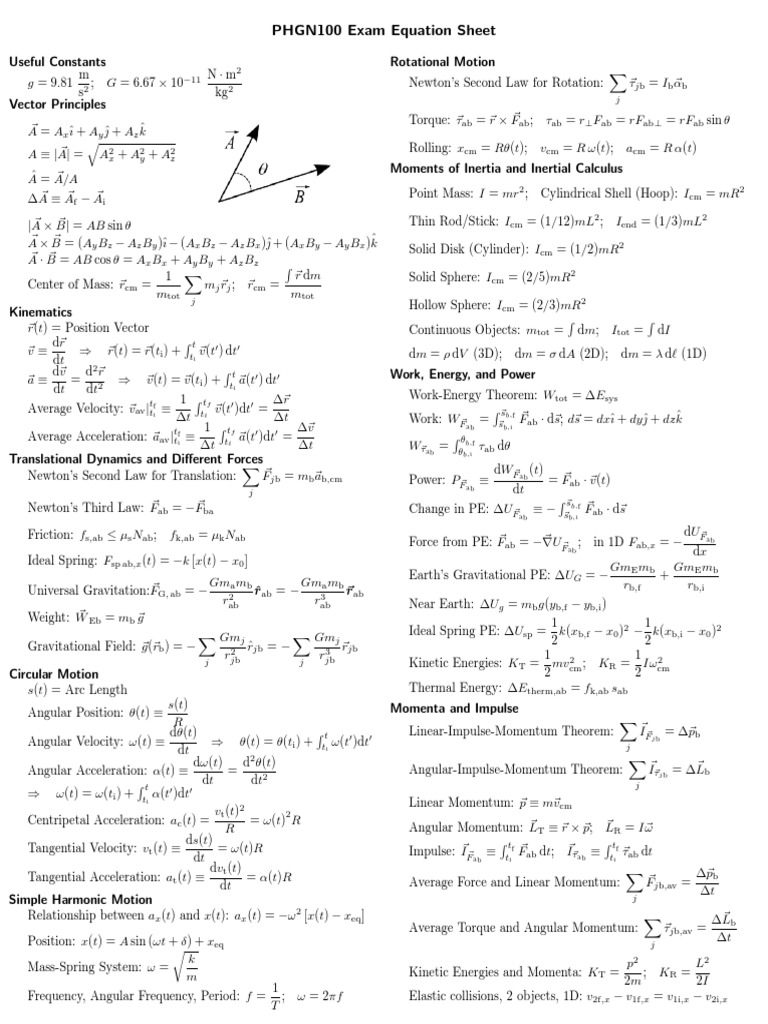 PHGN100 Exam Equation Sheet
Useful Constants
g = 9.81 m/s²; G = 6.67 × 10⁻¹¹ N · m²/kg²
Vector Principles
A⃗ = Aₓî + A_yĵ + A_zk̂
A ≡ |A⃗| = √(Aₓ² + A_y² + A_z²)
Â = A⃗/A
ΔA⃗ ≡ A⃗_f − A⃗_i
A⃗
θ
B⃗
|A⃗ × B⃗| = AB sin θ
A⃗ × B⃗ = (A_yB_z − A_zB_y)î − (AₓB_z − A_zBₓ)ĵ + (AₓB_y − A_yBₓ)k̂
A⃗ · B⃗ = AB cos θ = AₓBₓ + A_yB_y + A_zB_z
Center of Mass: r⃗_cm = 1/m_tot ∑_j m_j r⃗_j; r⃗_cm = ∫ r⃗ dm / m_tot
Kinematics
r⃗(t) = Position Vector
v⃗ ≡ dr⃗/dt ⇒ r⃗(t) = r⃗(t_i) + ∫_{t_i}^{t} v⃗(t′) dt′
a⃗ ≡ dv⃗/dt = d²r⃗/dt² ⇒ v⃗(t) = v⃗(t_i) + ∫_{t_i}^{t} a⃗(t′) dt′
Average Velocity: v⃗_av|_{t_i}^{t_f} ≡ 1/Δt ∫_{t_i}^{t_f} v⃗(t′)dt′ = Δr⃗/Δt
Average Acceleration: a⃗_av|_{t_i}^{t_f} ≡ 1/Δt ∫_{t_i}^{t_f} a⃗(t′)dt′ = Δv⃗/Δt
Translational Dynamics and Different Forces
Newton's Second Law for Translation: ∑_j F⃗_jb = m_b a⃗_b,cm
Newton's Third Law: F⃗_ab = −F⃗_ba
Friction: f_s,ab ≤ μ_s N_ab; f_k,ab = μ_k N_ab
Ideal Spring: F_sp ab,x(t) = −k [x(t) − x₀]
Universal Gravitation: F⃗_G,ab = − Gm_a m_b/r²_ab r̂_ab = − Gm_a m_b/r³_ab r⃗_ab
Weight: W⃗_Eb = m_b g⃗
Gravitational Field: g⃗(r⃗_b) = − ∑_j Gm_j/r²_jb r̂_jb = − ∑_j Gm_j/r³_jb r⃗_jb
Circular Motion
s(t) = Arc Length
Angular Position: θ(t) ≡ s(t)/R
Angular Velocity: ω(t) ≡ dθ(t)/dt ⇒ θ(t) = θ(t_i) + ∫_{t_i}^{t} ω(t′)dt′
Angular Acceleration: α(t) ≡ dω(t)/dt = d²θ(t)/dt²
⇒ ω(t) = ω(t_i) + ∫_{t_i}^{t} α(t′)dt′
Centripetal Acceleration: a_c(t) = v_t(t)²/R = ω(t)²R
Tangential Velocity: v_t(t) ≡ ds(t)/dt = ω(t)R
Tangential Acceleration: a_t(t) ≡ dv_t(t)/dt = α(t)R
Simple Harmonic Motion
Relationship between aₓ(t) and x(t): aₓ(t) = −ω² [x(t) − x_eq]
Position: x(t) = A sin (ωt + δ) + x_eq
Mass-Spring System: ω = √(k/m)
Frequency, Angular Frequency, Period: f = 1/T; ω = 2πf
Rotational Motion
Newton's Second Law for Rotation: ∑_j τ⃗_jb = I_b α⃗_b
Torque: τ⃗_ab = r⃗ × F⃗_ab; τ_ab = r_⊥F_ab = rF_ab⊥ = rF_ab sin θ
Rolling: x_cm = Rθ(t); v_cm = R ω(t); a_cm = R α(t)
Moments of Inertia and Inertial Calculus
Point Mass: I = mr²; Cylindrical Shell (Hoop): I_cm = mR²
Thin Rod/Stick: I_cm = (1/12)mL²; I_end = (1/3)mL²
Solid Disk (Cylinder): I_cm = (1/2)mR²
Solid Sphere: I_cm = (2/5)mR²
Hollow Sphere: I_cm = (2/3)mR²
Continuous Objects: m_tot = ∫ dm; I_tot = ∫ dI
dm = ρ dV (3D); dm = σ dA (2D); dm = λ dℓ (1D)
Work, Energy, and Power
Work-Energy Theorem: W_tot = ΔE_sys
Work: W_F⃗ab = ∫_{s⃗_b,i}^{s⃗_b,f} F⃗_ab · ds⃗; ds⃗ = dxî + dyĵ + dzk̂
W_τ⃗ab = ∫_{θ_b,i}^{θ_b,f} τ_ab dθ
Power: P_F⃗ab ≡ dW_F⃗ab(t)/dt = F⃗_ab · v⃗(t)
Change in PE: ΔU_F⃗ab ≡ − ∫_{s⃗_b,i}^{s⃗_b,f} F⃗_ab · ds⃗
Force from PE: F⃗_ab = −∇⃗U_F⃗ab; in 1D F_ab,x = − dU_F⃗ab/dx
Earth's Gravitational PE: ΔU_G = − Gm_E m_b/r_b,f + Gm_E m_b/r_b,i
Near Earth: ΔU_g = m_b g(y_b,f − y_b,i)
Ideal Spring PE: ΔU_sp = 1/2 k(x_b,f − x₀)² − 1/2 k(x_b,i − x₀)²
Kinetic Energies: K_T = 1/2 mv²_cm; K_R = 1/2 Iω²_cm
Thermal Energy: ΔE_therm,ab = f_k,ab s_ab
Momenta and Impulse
Linear-Impulse-Momentum Theorem: ∑_j I⃗_F⃗jb = Δp⃗_b
Angular-Impulse-Momentum Theorem: ∑_j I⃗_τ⃗jb = ΔL⃗_b
Linear Momentum: p⃗ ≡ mv⃗_cm
Angular Momentum: L⃗_T ≡ r⃗ × p⃗; L⃗_R = Iω⃗
Impulse: I⃗_F⃗ab ≡ ∫_{t_i}^{t_f} F⃗_ab dt; I⃗_τ⃗ab ≡ ∫_{t_i}^{t_f} τ⃗_ab dt
Average Force and Linear Momentum: ∑_j F⃗_jb,av = Δp⃗_b/Δt
Average Torque and Angular Momentum: ∑_j τ⃗_jb,av = ΔL⃗_b/Δt
Kinetic Energies and Momenta: K_T = p²/2m; K_R = L²/2I
Elastic collisions, 2 objects, 1D: v_2f,x − v_1f,x = v_1i,x − v_2i,x